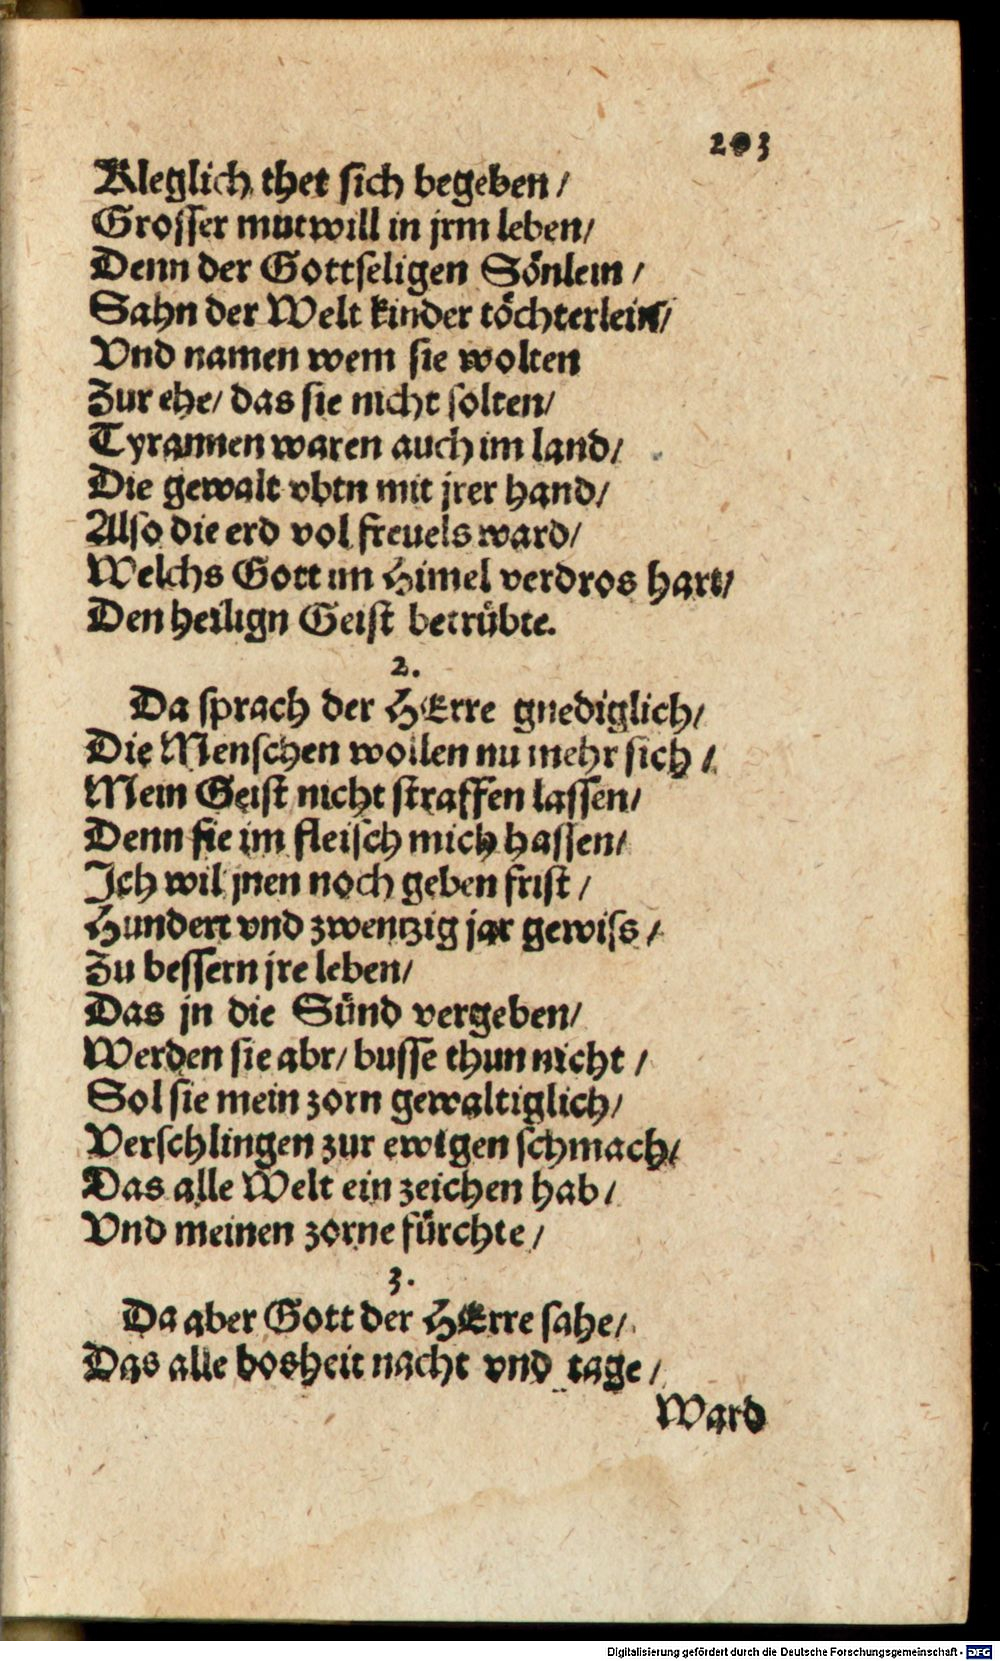 203
Kleglich thet sich begeben /
Grosser mutwill in jrm leben/
Denn der Gottseligen Sönlein /
Sahn der Welt kinder töchterlein/
Vnd namen wem sie wolten
Zur ehe/ das sie nicht solten/
Tyrannen waren auch im land/
Die gewalt vbtn mit jrer hand/
Also die erd vol freuels ward/
Welchs Gott im Himel verdros hart/
Den heilign Geist betrübte.
2.
Da sprach der HErre gnediglich/
Die Menschen wollen nu mehr sich /
Mein Geist nicht straffen lassen/
Denn sie im fleisch mich hassen/
Ich wil jnen noch geben frist /
Hundert vnd zwentzig jar gewiss /
Zu bessern jre leben/
Das jn die Sünd vergeben/
Werden sie abr/ busse thun nicht /
Sol sie mein zorn gewaltiglich/
Verschlingen zur ewigen schmach/
Das alle Welt ein zeichen hab /
Vnd meinen zorne fürchte /
3.
Da aber Gott der HErre sahe/
Das alle bosheit nacht vnd tage /
Ward
Digitalisierung gefördert durch die Deutsche Forschungsgemeinschaft - DFG